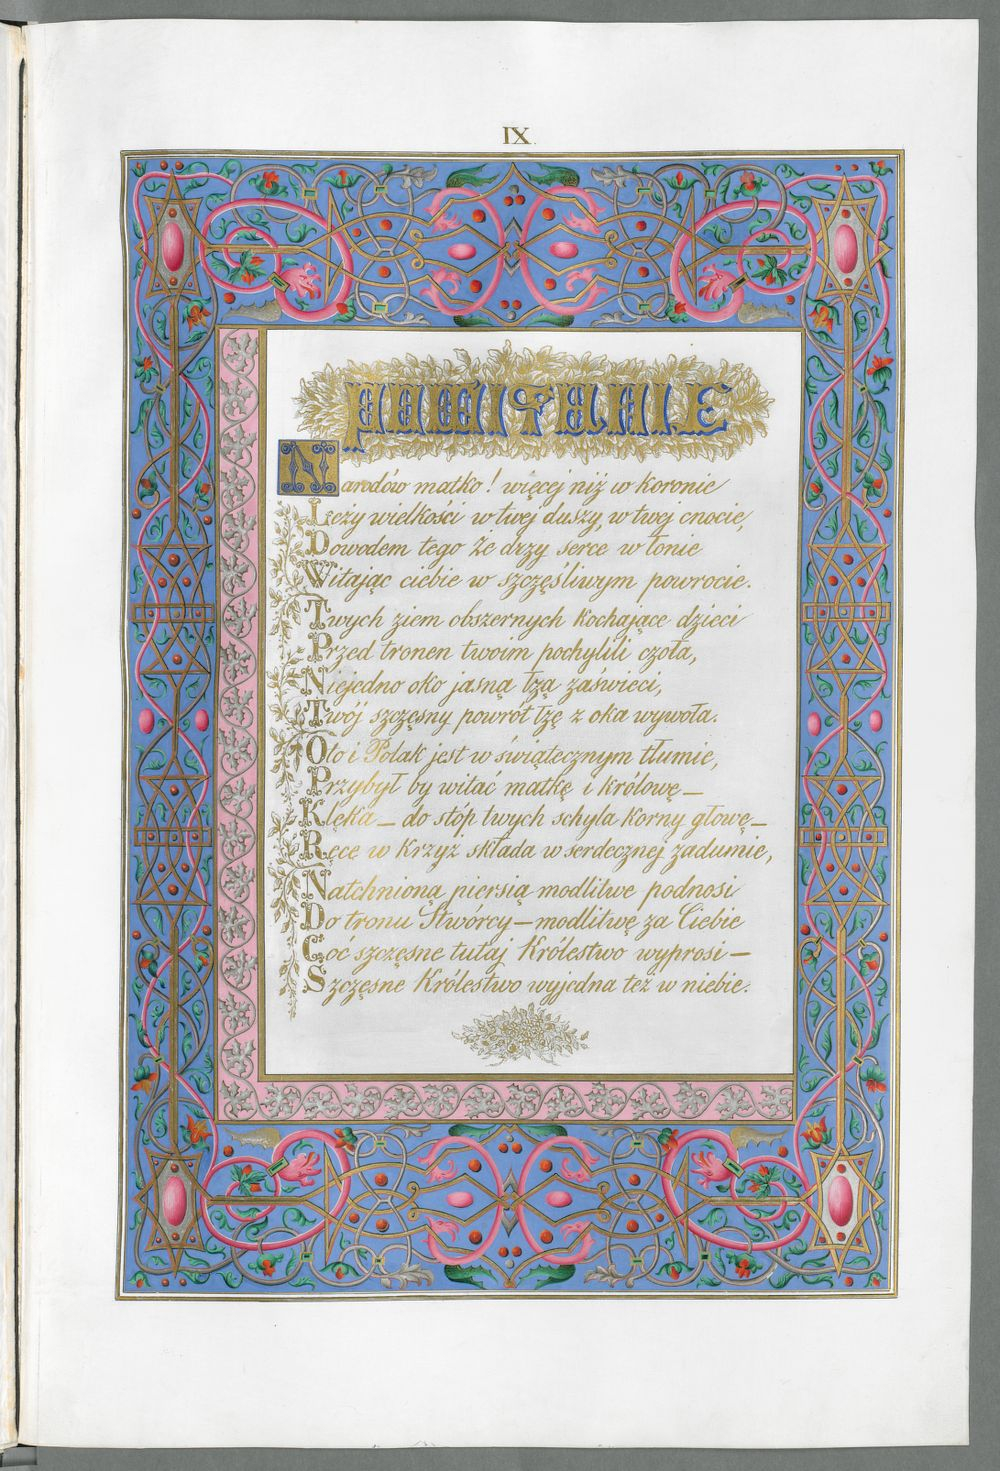 IX.
POWITANIE
Narodów matko! więcej niż w koronie
Leży wielkości w twej duszy, w twej cnocie,
Dowodem tego że drży serce w łonie
Witając ciebie w szczęśliwym powrocie.
Twych ziem obszernych kochające dzieci
Przed tronen twoim pochylili czoła,
Niejedno oko jasną łzą zaswieci,
Twój szczęsny powrót łzę z oka wywoła.
Oto i Polak jest w świątecznym tłumie,
Przybył by witać matkę i królowę —
Klęka — do stóp twych schyla korny głowę —
Ręce w krzyż składa w serdecznej zadumie,
Natchnioną piersią modlitwe podnosi
Do tronu Stwórcy — modlitwę za Ciebie
Coć szczęsne tutaj Królestwo wyprosi —
Szczęsne Królestwo wyjedna też w niebie.